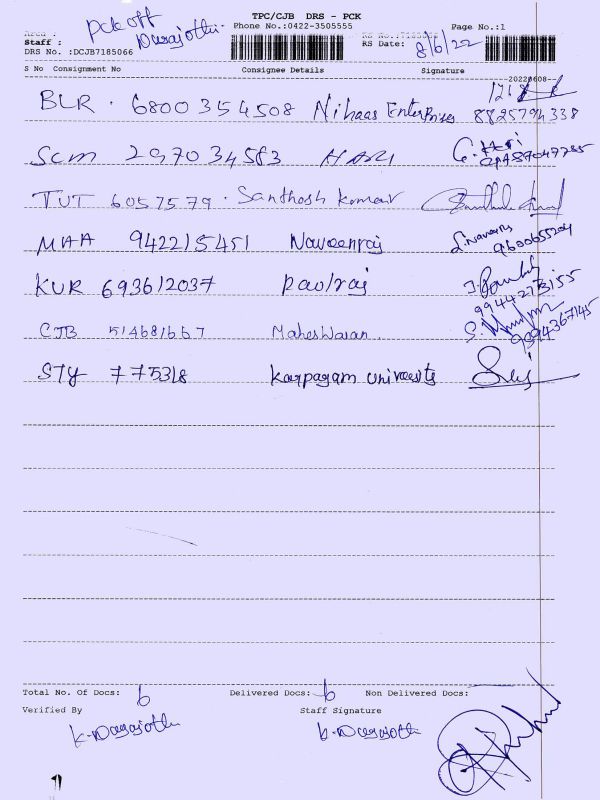 TPC/CJB DRS - PCK
pck off
Phone No.:0422-3505555
Page No.:1
Area :
Staff :
DRS No. :DCJB7185066
RS Date: 8/6/22
S No Consignment No Consignee Details Signature
20220608
BLR . 6800354508 Nihaas Enterprises 8825794338
SCM 297034583 HARI
TUT 6057579 . Santhosh kumar
MAA 942215451 Naveenraj 9600655204
KUR 693612037 paulraj
9944273155
CJB 514681667 Maheswaran
9894367145
STY 775318 karpagam university
Total No. Of Docs: 6 Delivered Docs: 6 Non Delivered Docs:
Verified By Staff Signature